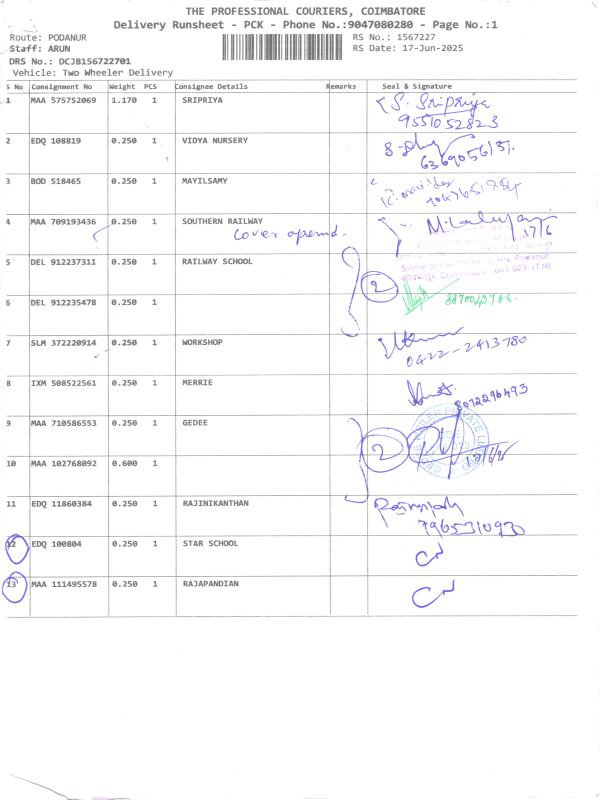 THE PROFESSIONAL COURIERS, COIMBATORE
Delivery Runsheet - PCK - Phone No.:9047080280 - Page No.:1
Route: PODANUR RS No.: 1567227
Staff: ARUN RS Date: 17-Jun-2025
DRS No.: DCJB156722701
Vehicle: Two Wheeler Delivery
S No Consignment No Weight PCS Consignee Details Remarks Seal & Signature
1 MAA 575752069 1.170 1 SRIPRIYA S. Sripriya
9551052823
2 EDQ 108819 0.250 1 VIDYA NURSERY
3 BOD 518465 0.250 1 MAYILSAMY
4 MAA 709193436 0.250 1 SOUTHERN RAILWAY
cover opened. 17/6
5 DEL 912237311 0.250 1 RAILWAY SCHOOL
2
6 DEL 912235478 0.250 1
7 SLM 372220914 0.250 1 WORKSHOP
0422-2413780
8 IXM 508522561 0.250 1 MERRIE
8072296493
9 MAA 710586553 0.250 1 GEDEE
2
10 MAA 102768092 0.600 1
11 EDQ 11860384 0.250 1 RAJINIKANTHAN
12 EDQ 100804 0.250 1 STAR SCHOOL
13 MAA 111495578 0.250 1 RAJAPANDIAN